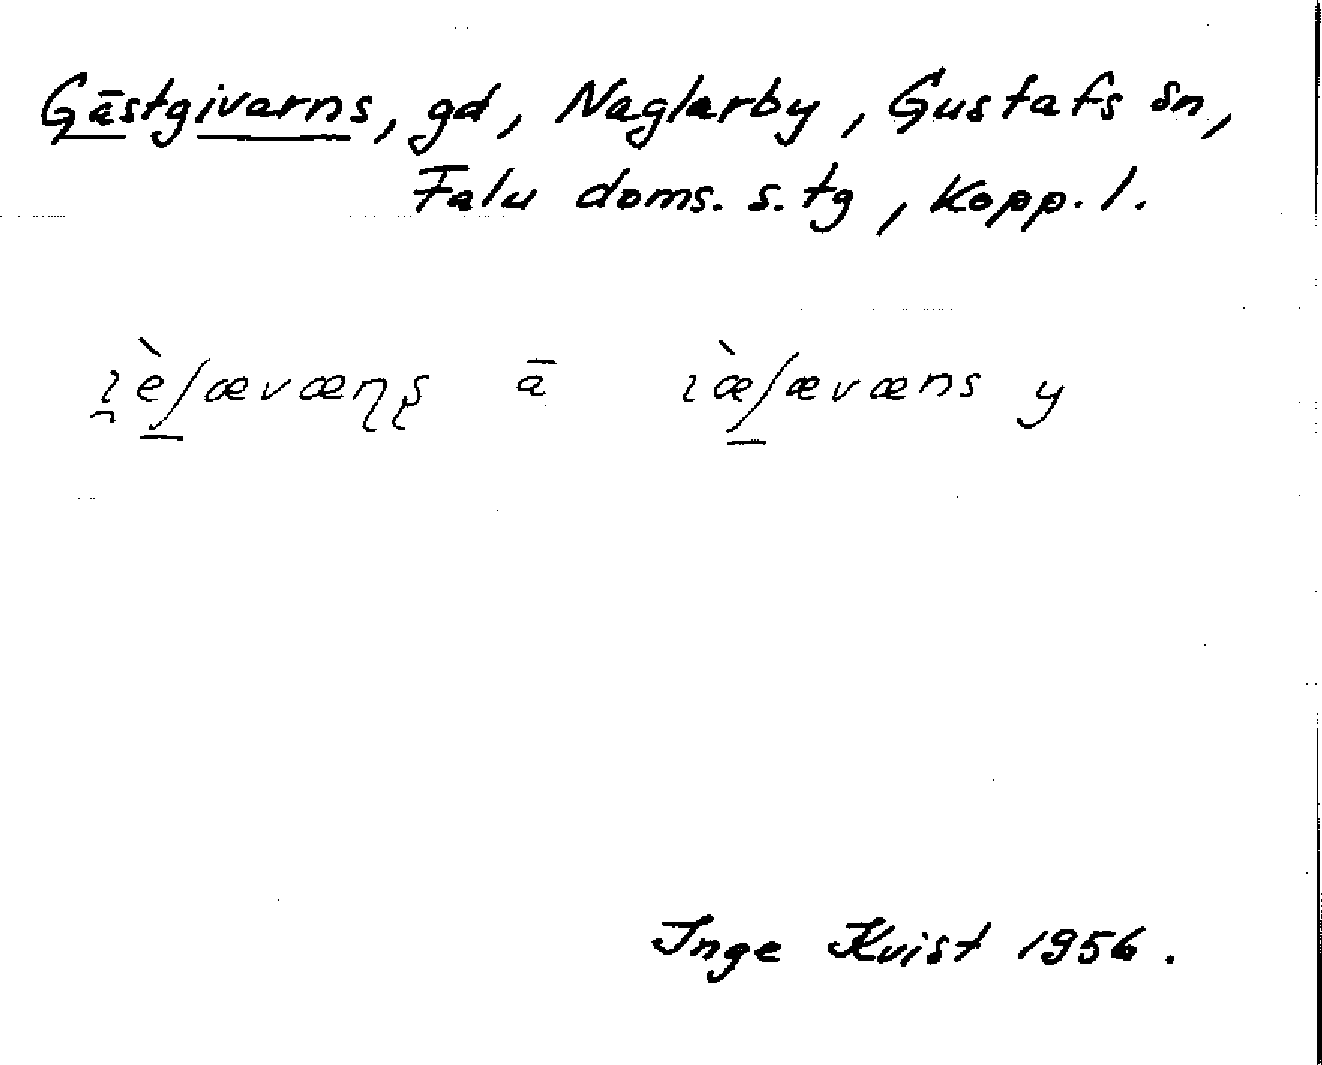 Gästgivarns, gd, Naglarby, Gustafs sn,
Falu doms. s. tg, Kopp. l.
ā y
Inge Kvist 1956.